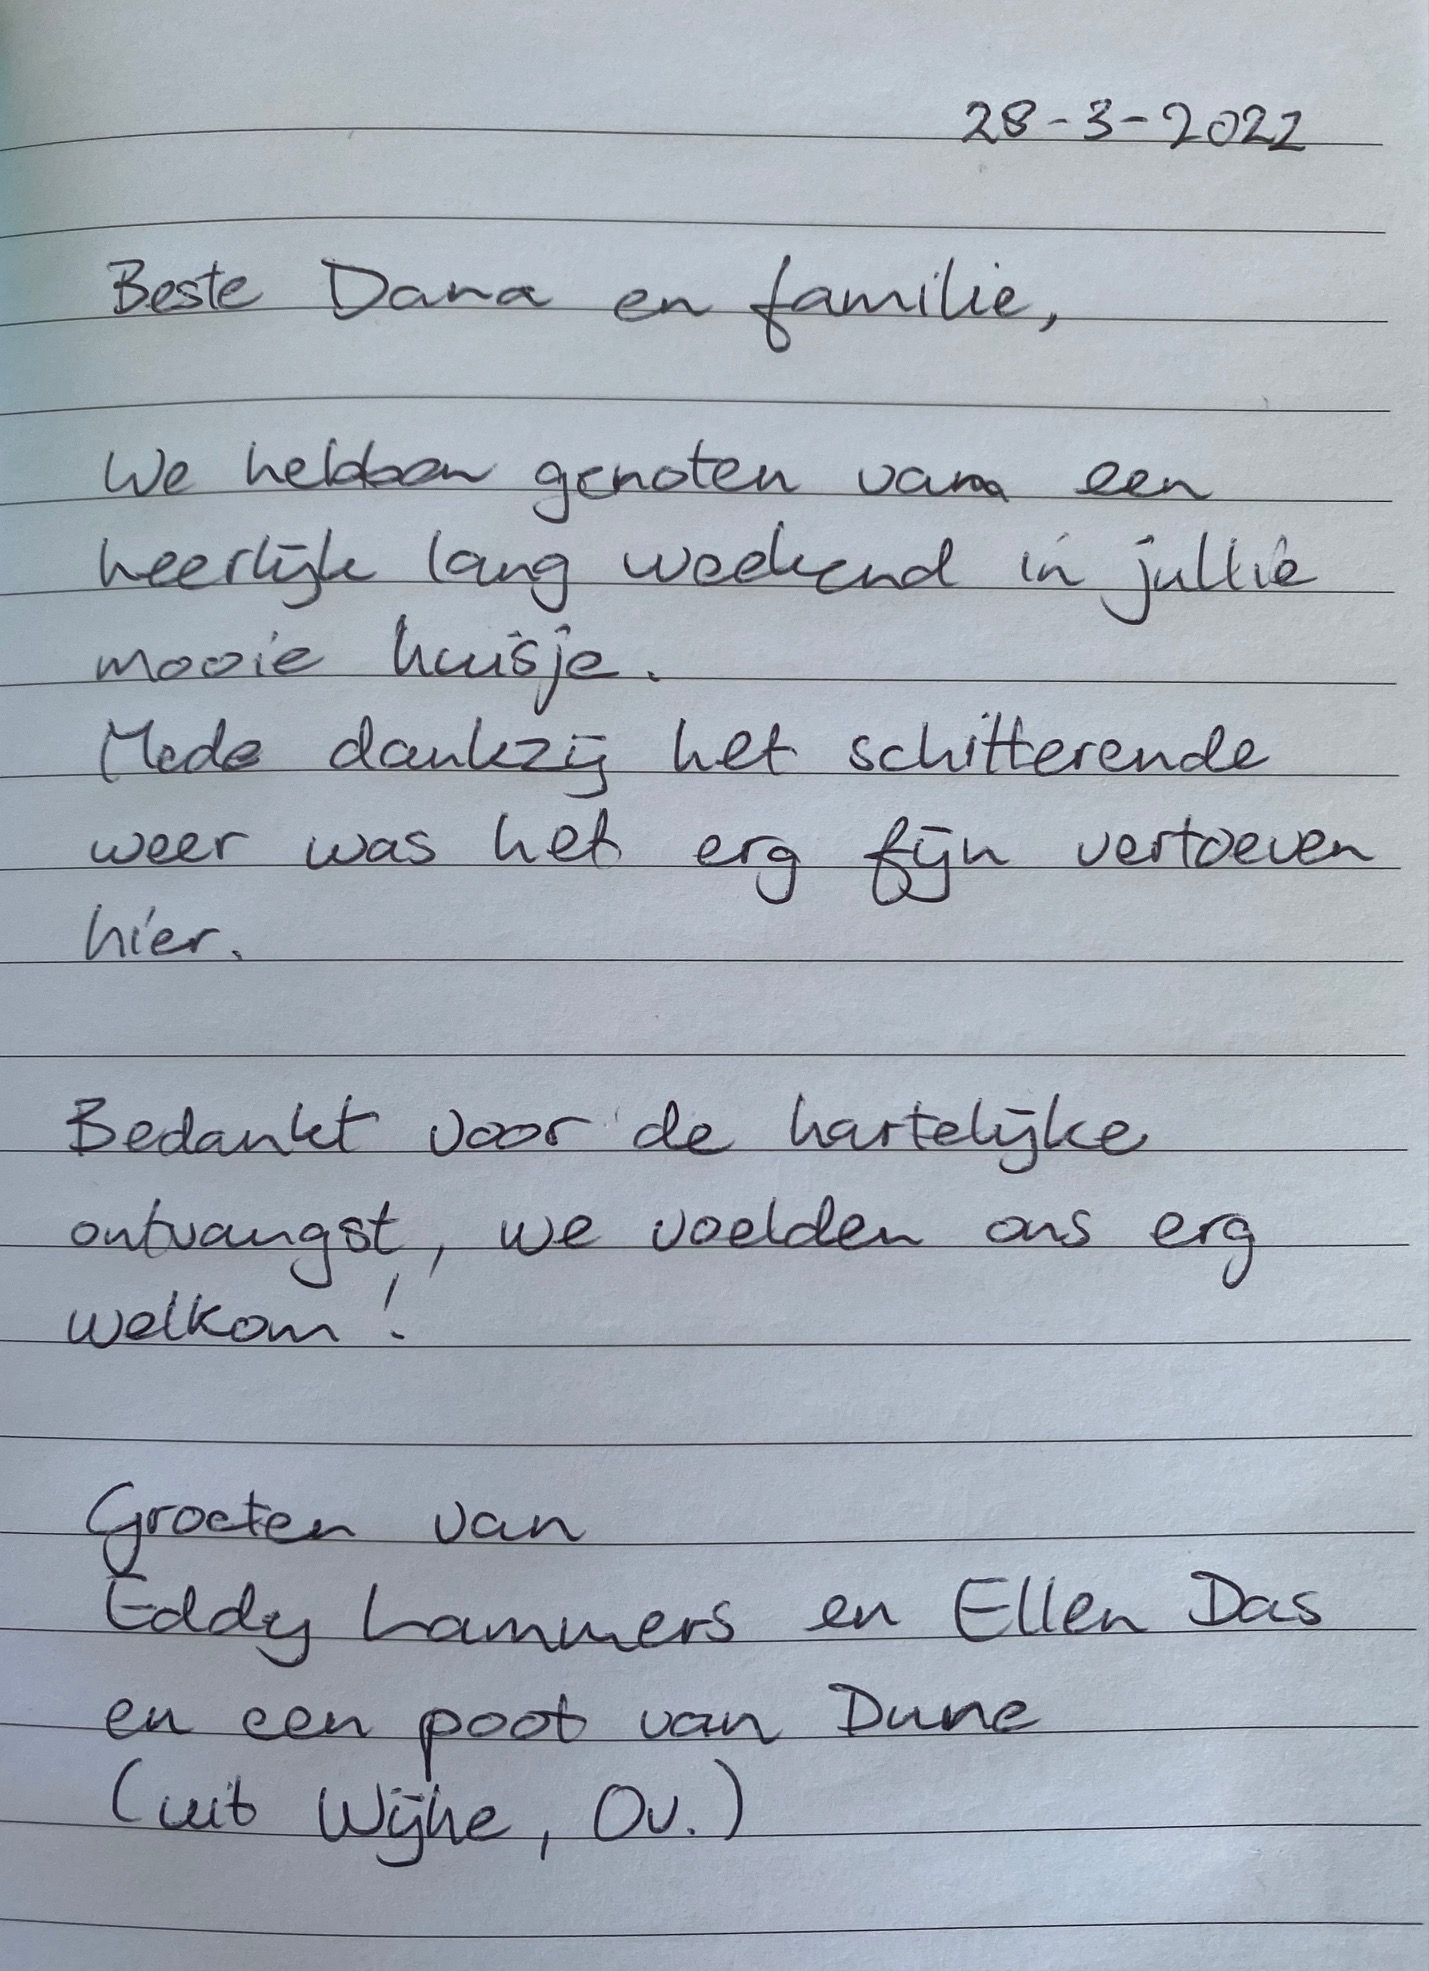 28-3-2022
Beste Dana en familie,
We hebben genoten van een
heerlijk lang weekend in jullie
mooie huisje.
Mede dankzij het schitterende
weer was het erg fijn vertoeven
hier.
Bedankt voor de hartelijke
ontvangst, we voelden ons erg
welkom!
Groeten van
Eddy Lammers en Ellen Das
en een poot van Dune
(uit Wijhe, Ov.)